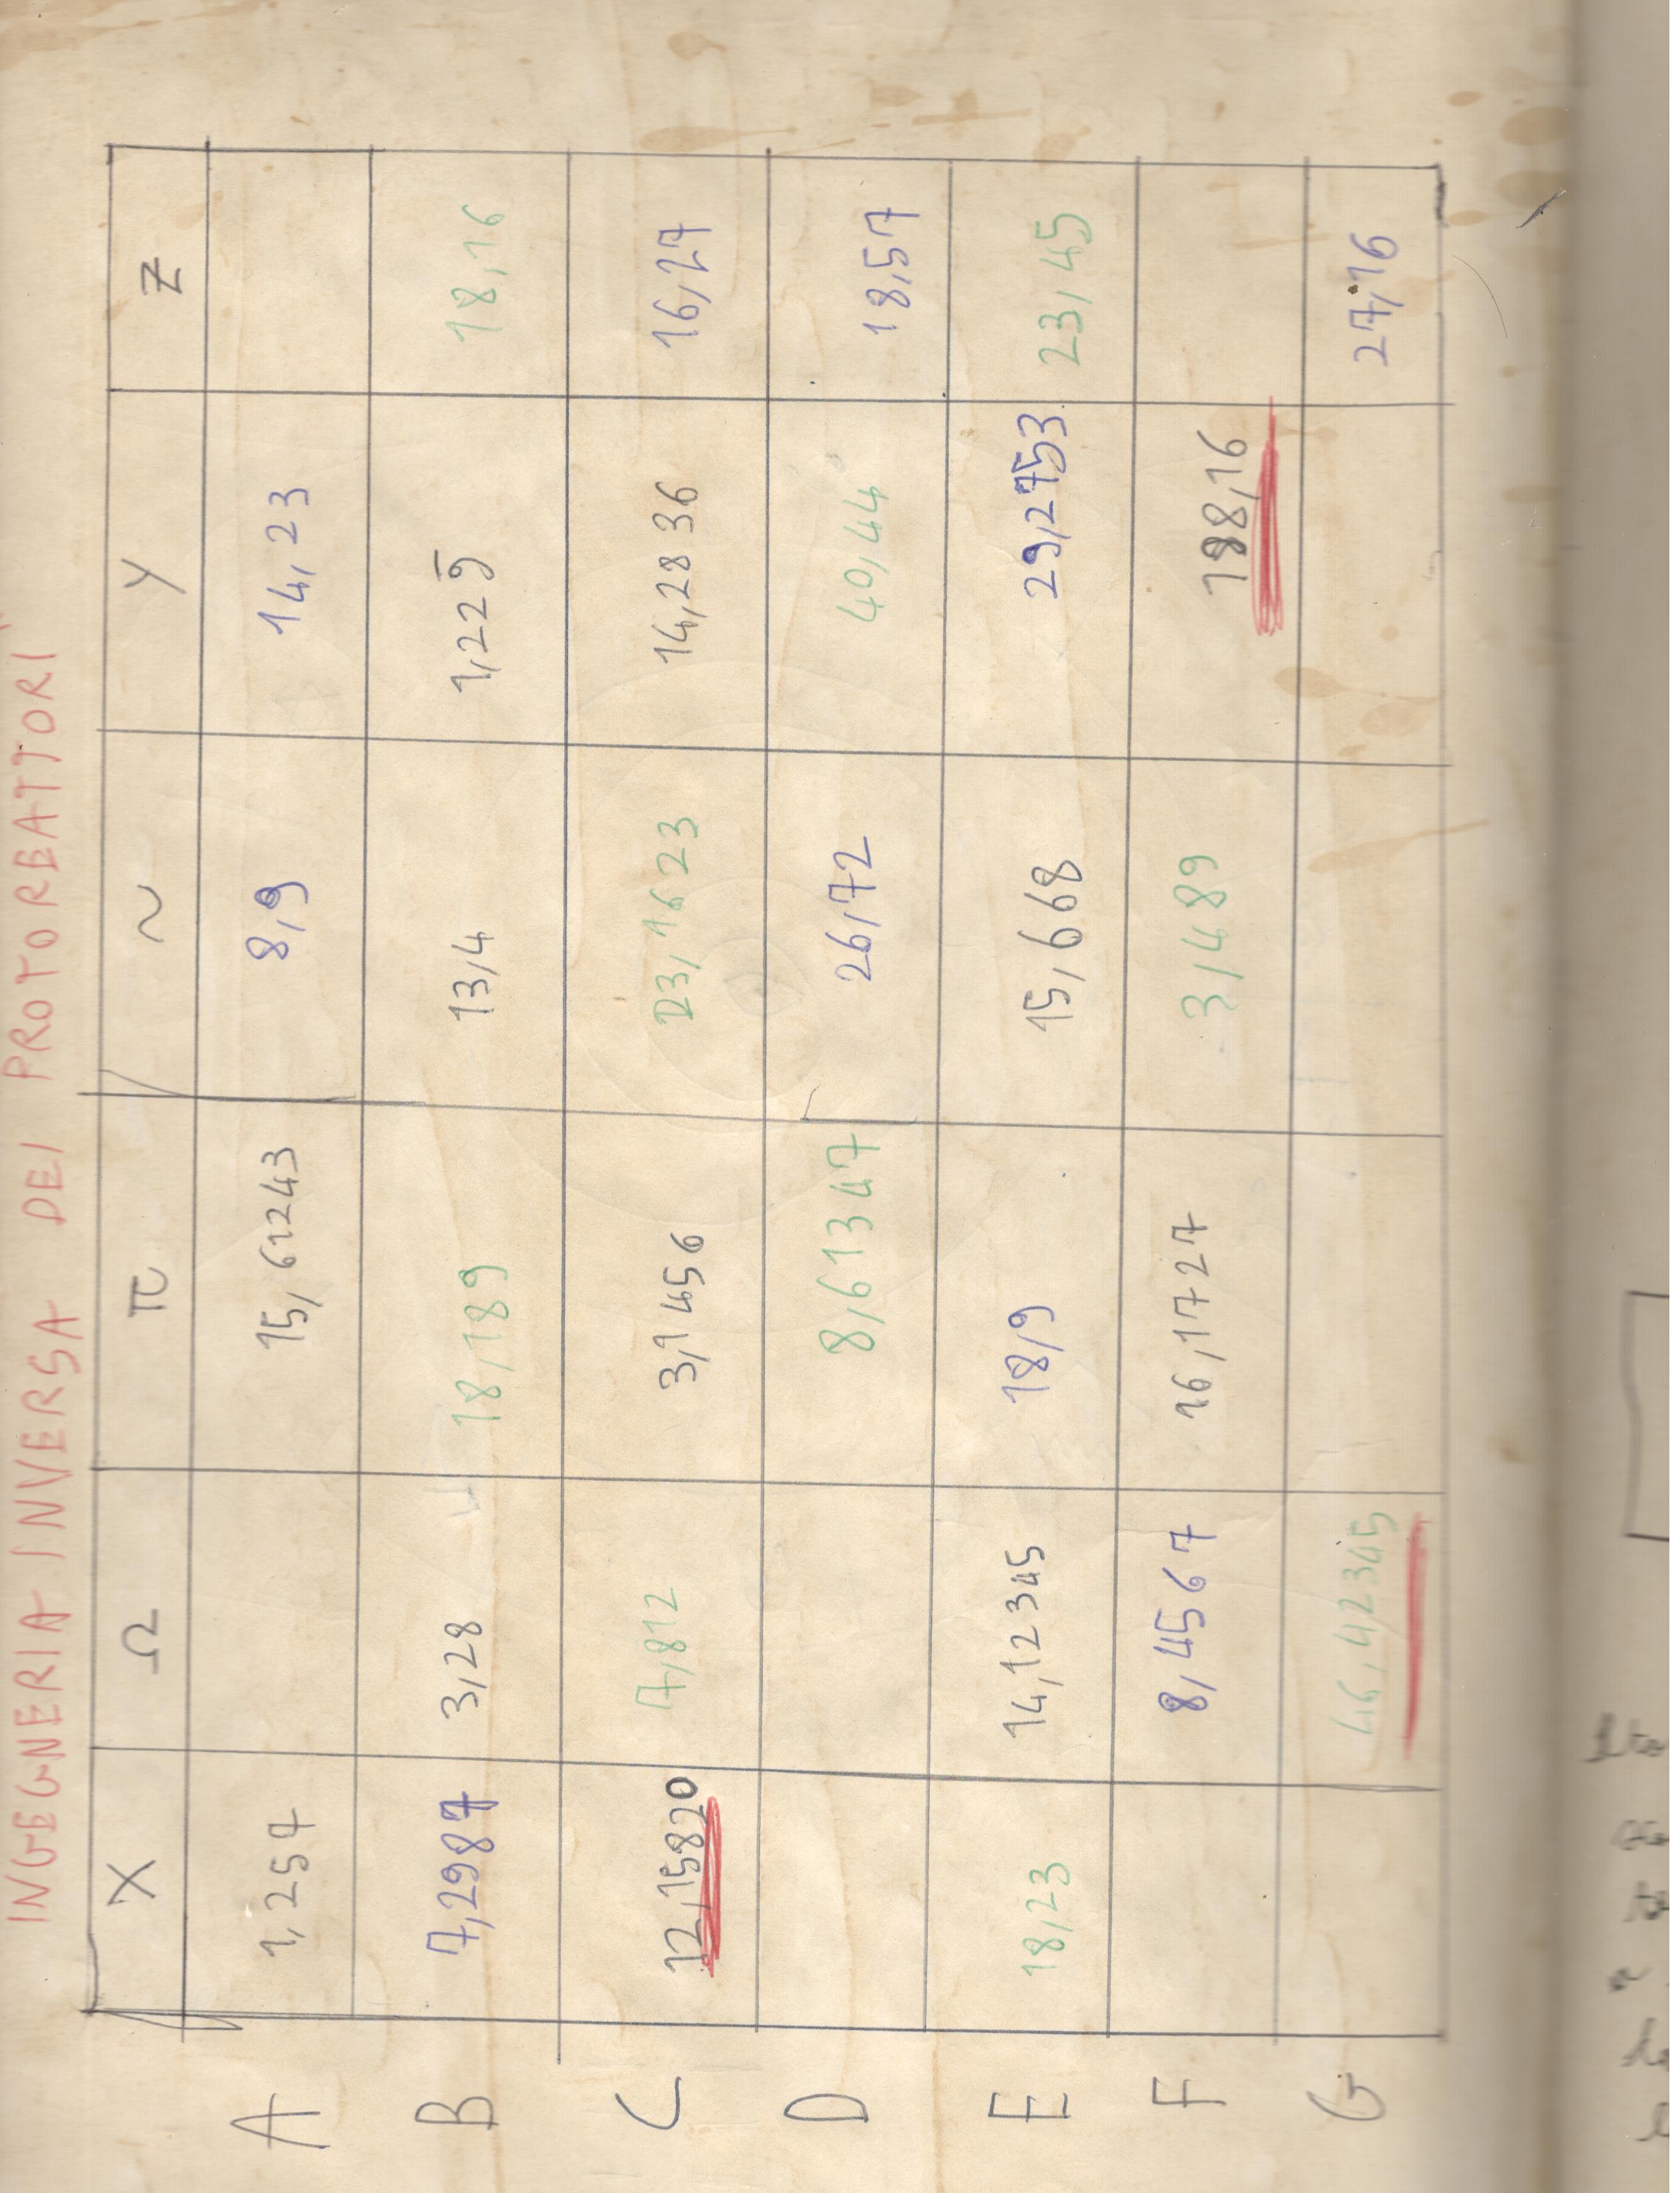 INGEGNERIA INVERSA DEI PROTOREATTORI
X Ω π ~ Y Z
A 1,257 15,61243 8,9 14,23
B 7,2987 3,28 18,189 13,4 1,229̅ 18,16
C 12,15820 7,812 3,1456 23,1623 14,2836 16,27
D 8,61347 26,72 40,44 18,57
E 18,23 14,12345 18,9 15,668 29,2753 23,45
F 8,4567 16,1727 3,489 188,16
G 46,42345 27,16